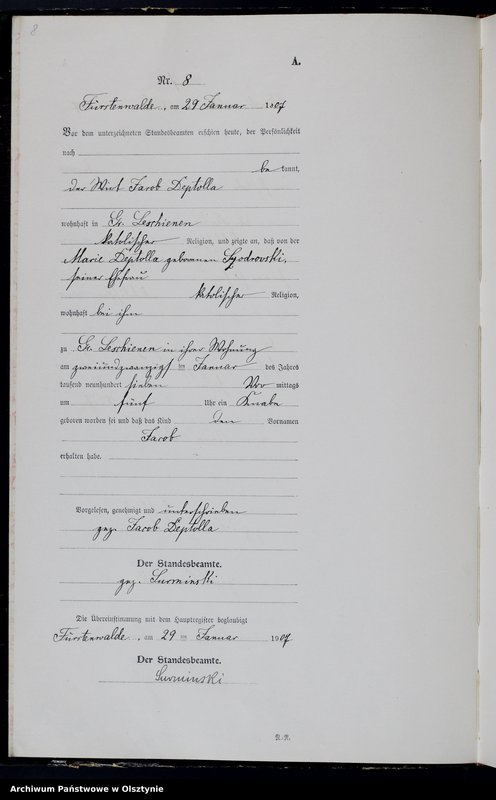 8
A.
Nr. 8
Fürstenwalde, am 29 Januar 1907
Vor dem unterzeichneten Standesbeamten erschien heute, der Persönlichkeit
nach
be kannt,
der Wirt Jacob Deptolla
wohnhaft in Gr. Leschienen
katolischer Religion, und zeigte an, daß von der
Marie Deptolla geborenen
seiner Ehefrau
katolischer Religion,
wohnhaft bei ihm
zu Gr. Leschienen in ihrer Wohnung
am zweiundzwanzigst en Januar des Jahres
tausend neunhundert sieben Vor mittags
um fünf Uhr ein Knabe
geboren worden sei und daß das Kind den Vornamen
Jacob
erhalten habe.
Vorgelesen, genehmigt und unterschrieben
gez. Jacob Deptolla
Der Standesbeamte.
gez. Surminski
Die Übereinstimmung mit dem Hauptregister beglaubigt
Fürstenwalde, am 29 ten Januar 1907
Der Standesbeamte.
Surminski
Archiwum Państwowe w Olsztynie